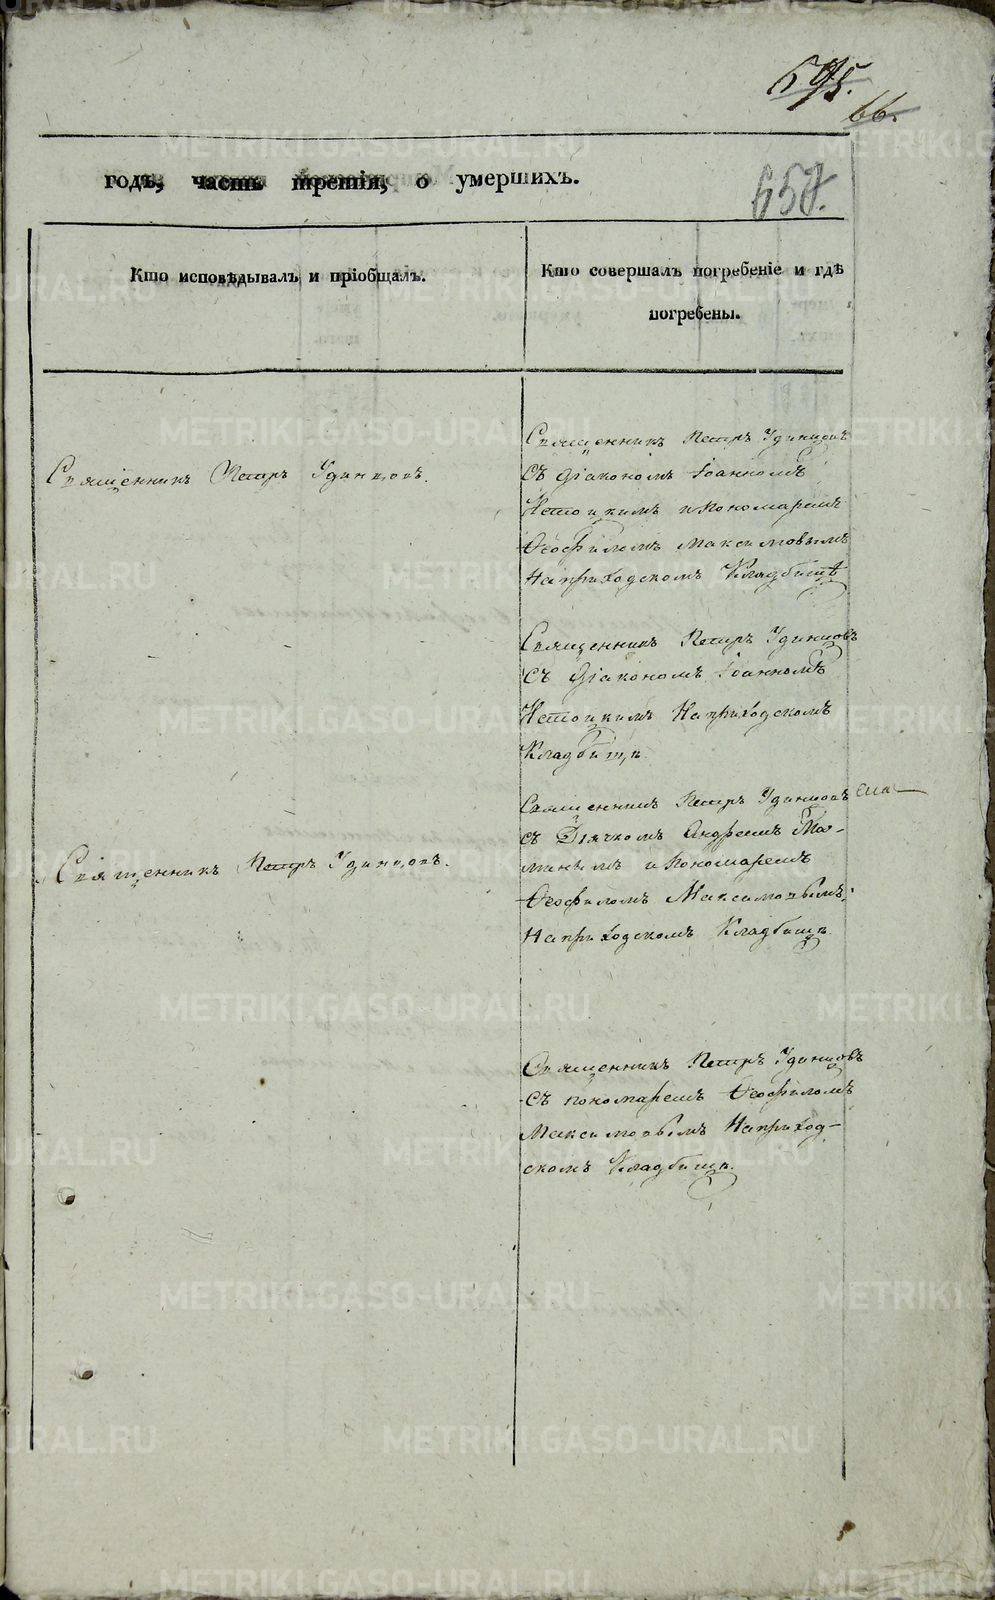 595.
66.
657.
годъ, часть третія, о умершихъ.
Кто исповѣдывалъ и пріобщалъ.
Кто совершалъ погребеніе и гдѣ
погребены.
Священникъ Петръ Удинцовъ.
Священникъ Петръ Удинцовъ
съ Діакономъ Іоанномъ
и Пономаремъ
Ѳеофиломъ Максимовымъ
На приходскомъ Кладбищѣ
Священникъ Петръ Удинцовъ
съ Діакономъ Іоанномъ
На приходскомъ
Кладбищѣ
Священникъ Петръ Удинцовъ
съ Дьячкомъ Андреемъ Ма-
минымъ и Пономаремъ
Ѳеофиломъ Максимовымъ
На приходскомъ Кладбищѣ.
Священникъ Петръ Удинцовъ.
Священникъ Петръ Удинцовъ
съ пономаремъ Ѳеофиломъ
Максимовымъ На приход-
скомъ Кладбищѣ.
METRIKI.GASO-URAL.RU